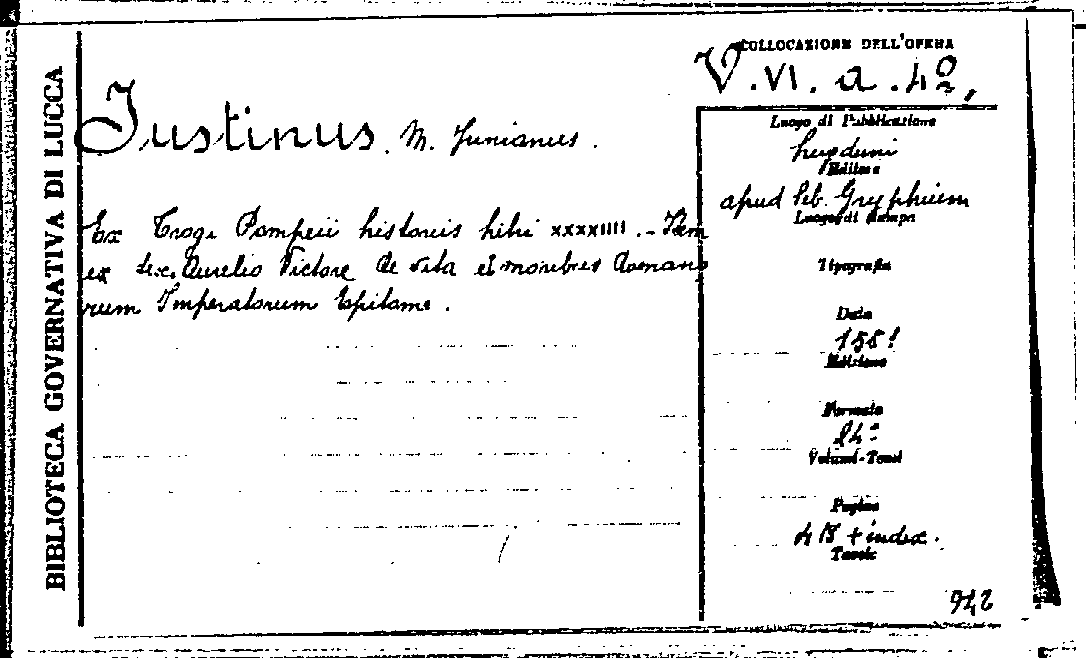 BIBLIOTECA GOVERNATIVA DI LUCCA
COLLOCAZIONE DELL'OPERA
V. VI. a. 42.
Iustinus. M. Junianus.
Ex Trogi Pompeii historiis libri xxxxıııı. - Item
ex Sex. Aurelio Victore de vita et moribus Romano
rum Imperatorum Epitome.
Luogo di Pubblicazione
Lugduni
Editore
apud Seb. Gryphium
Luogo di stampa
Tipografia
Data
1551
Edizione
Formato
24°
Volumi-Tomi
Pagine
418 + index.
Tavole
942